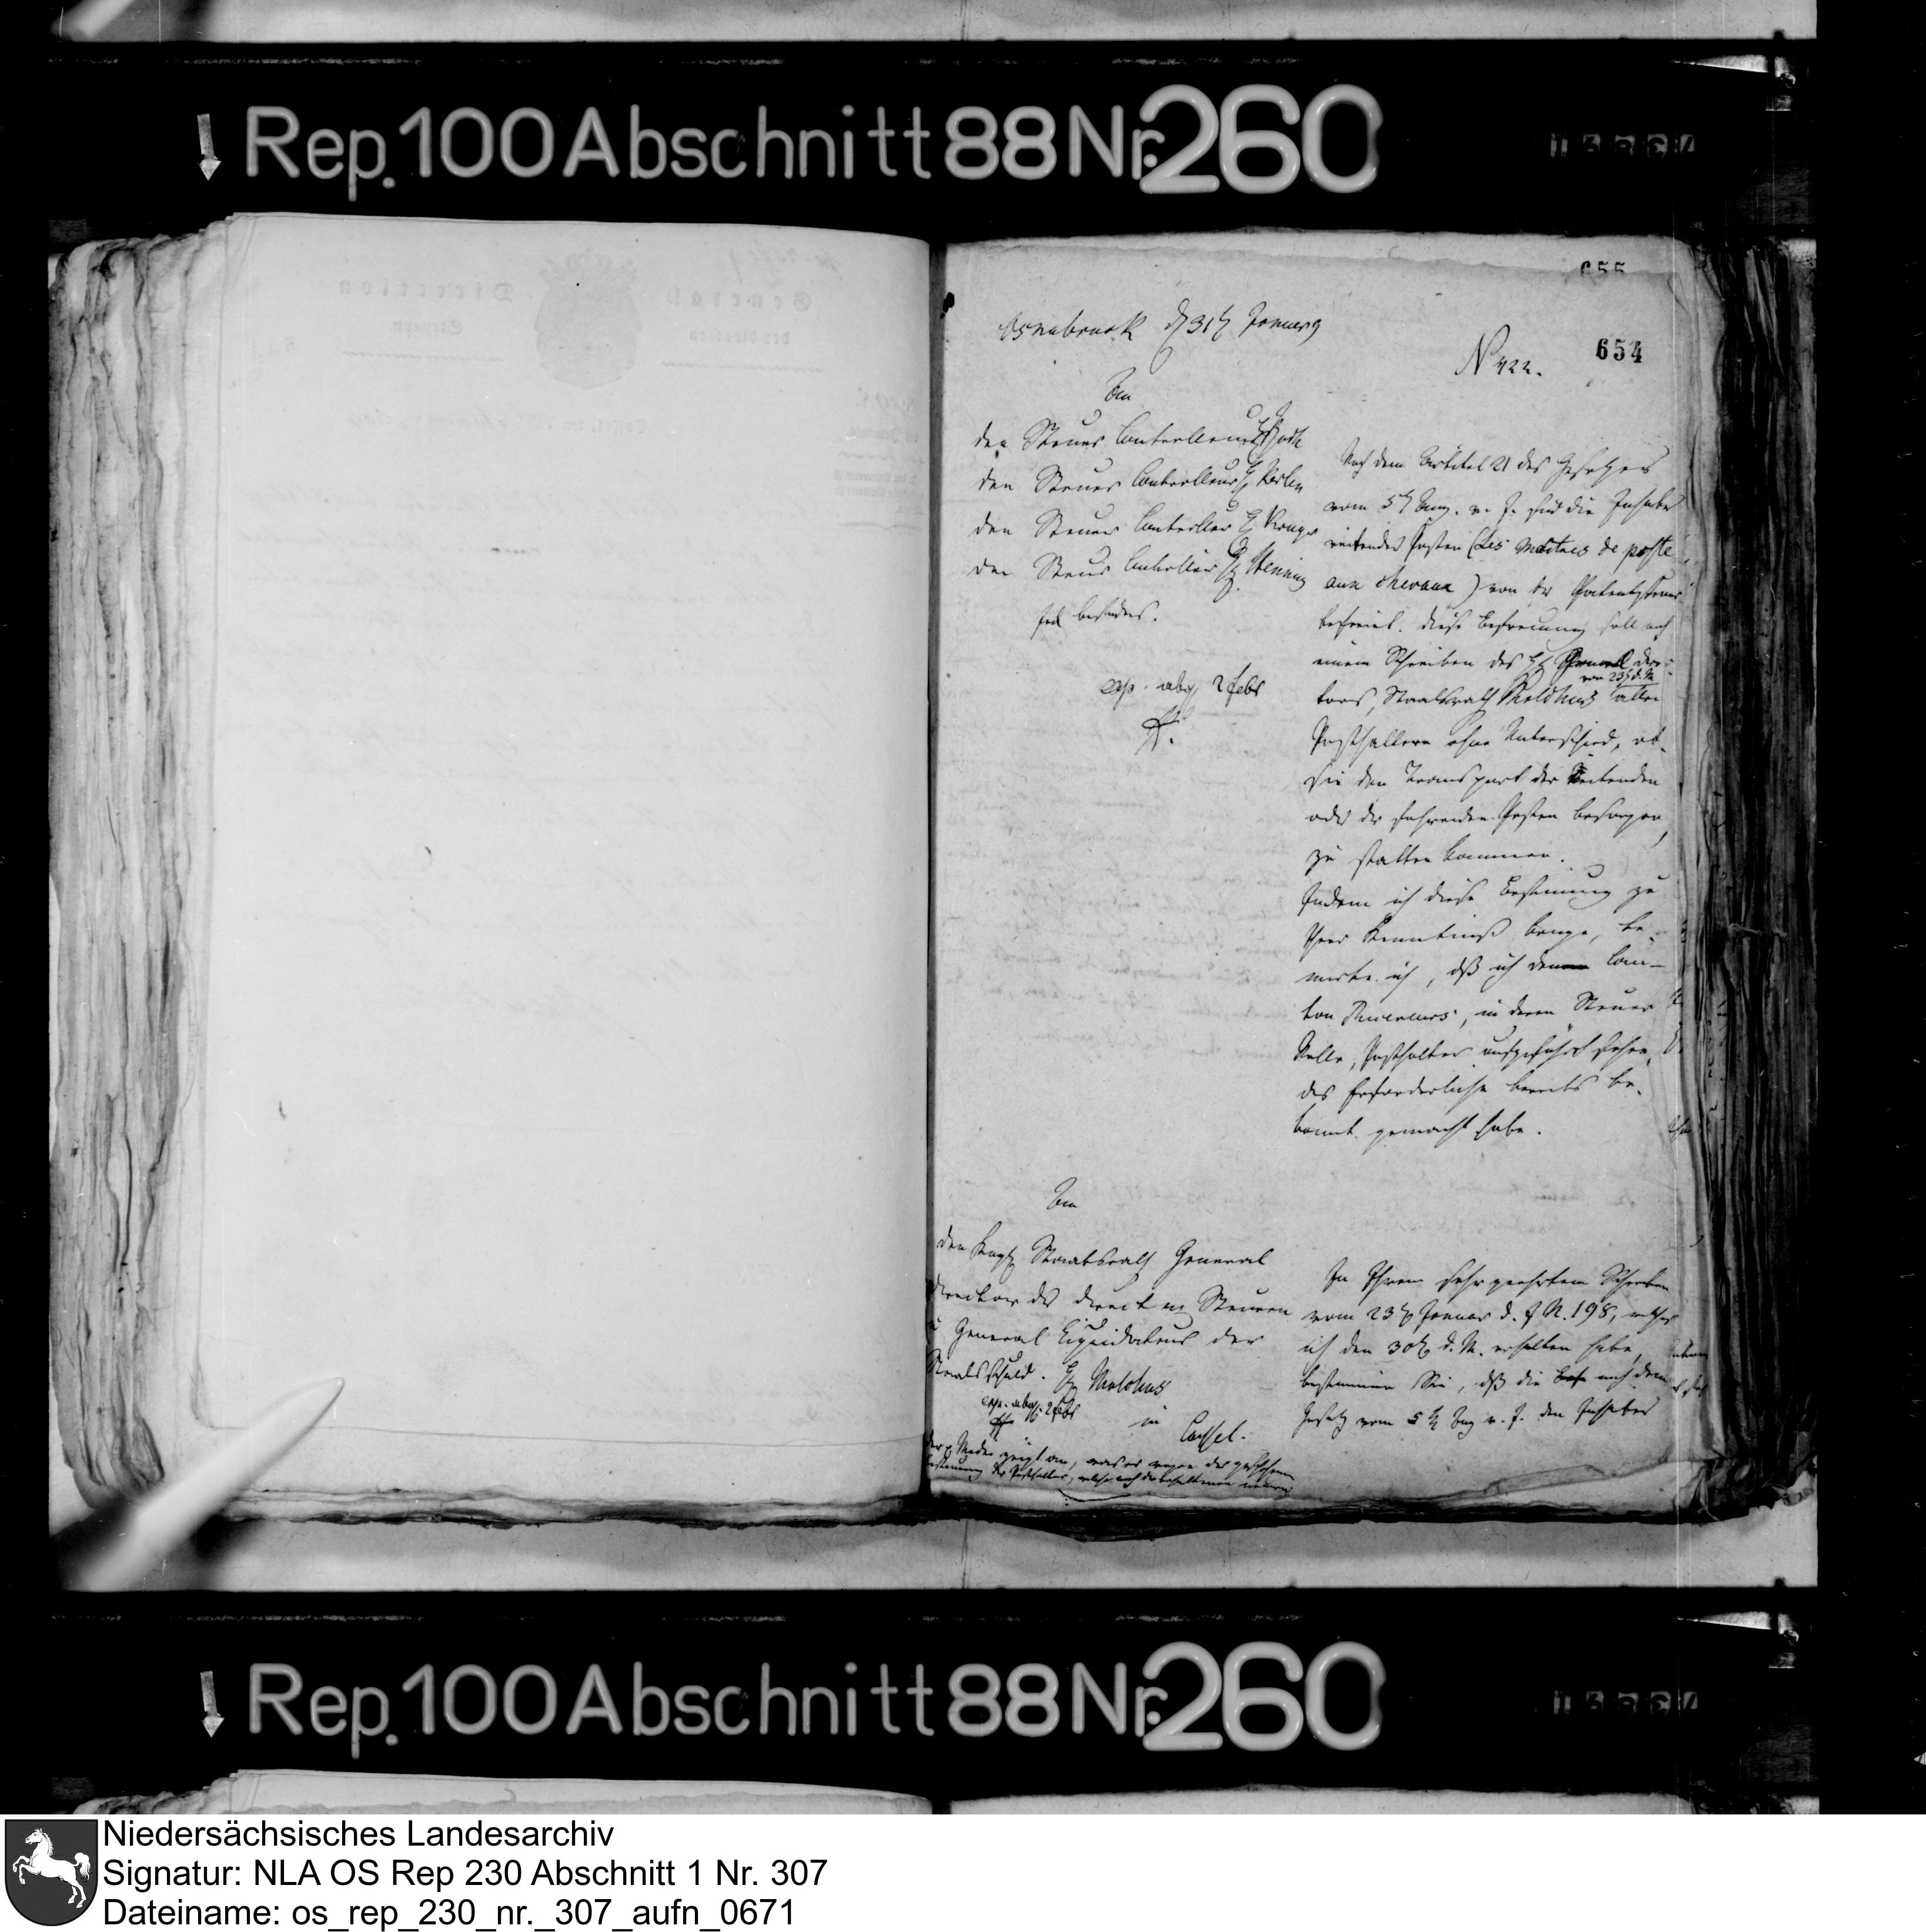 Rep. 100 Abschnitt 88 Nr. 260
655
654
Osnabruck d 31t Januar
N 422.
An
den Steuer Controlleur H
den Steuer Controlleur H
den Steuer Controlleur H Kruge
den Steuer Controlleur H Henning
jed besonders.
exp. abg. 2 febr
Nach dem Artikel 21 des Gesetzes
vom 5t Aug. v. J. sind die Inhaber
reitender Posten (Les maitres de poste
aux chevaux) von der Patentsteuer
befreiet. diese Befreiung soll nach
einem Schreiben des H General direc-
vom 23t d. M
tors, Staatsrath Malchus allen
Posthaltern ohne Unterschied, ob
sie den Transport der Reitenden
oder der fahrenden Posten besorgen,
zu statten kommen.
Indem ich diese Bestimmung zu
Ihrer Kenntniß bringe, be-
merke ich, daß ich den Can-
ton Receveurs, in deren Steuer
Rolle, Posthalter aufgeführt stehen,
das Erforderliche bereits be-
kannt gemacht habe.
An
den Staatsrath General
Director der directen Steuern
u General Liquidateur der
Staatsschuld. H Malchus
exp. abg. 2 febr
in
Cassel.
der zeigt an, was er wegen der geschehenen
der Posthalter, welche nach der
In Ihrem sehr geehrtem Schreiben
vom 23t Januar d. J N. 198, welches
ich den 30t d. M. erhalten habe,
bestimmen Sie, daß die nach dem
Gesetz vom 5t Aug v. J. den Inhaber
Rep. 100 Abschnitt 88 Nr. 260
Niedersächsisches Landesarchiv
Signatur: NLA OS Rep 230 Abschnitt 1 Nr. 307
Dateiname: os_rep_230_nr._307_aufn_0671